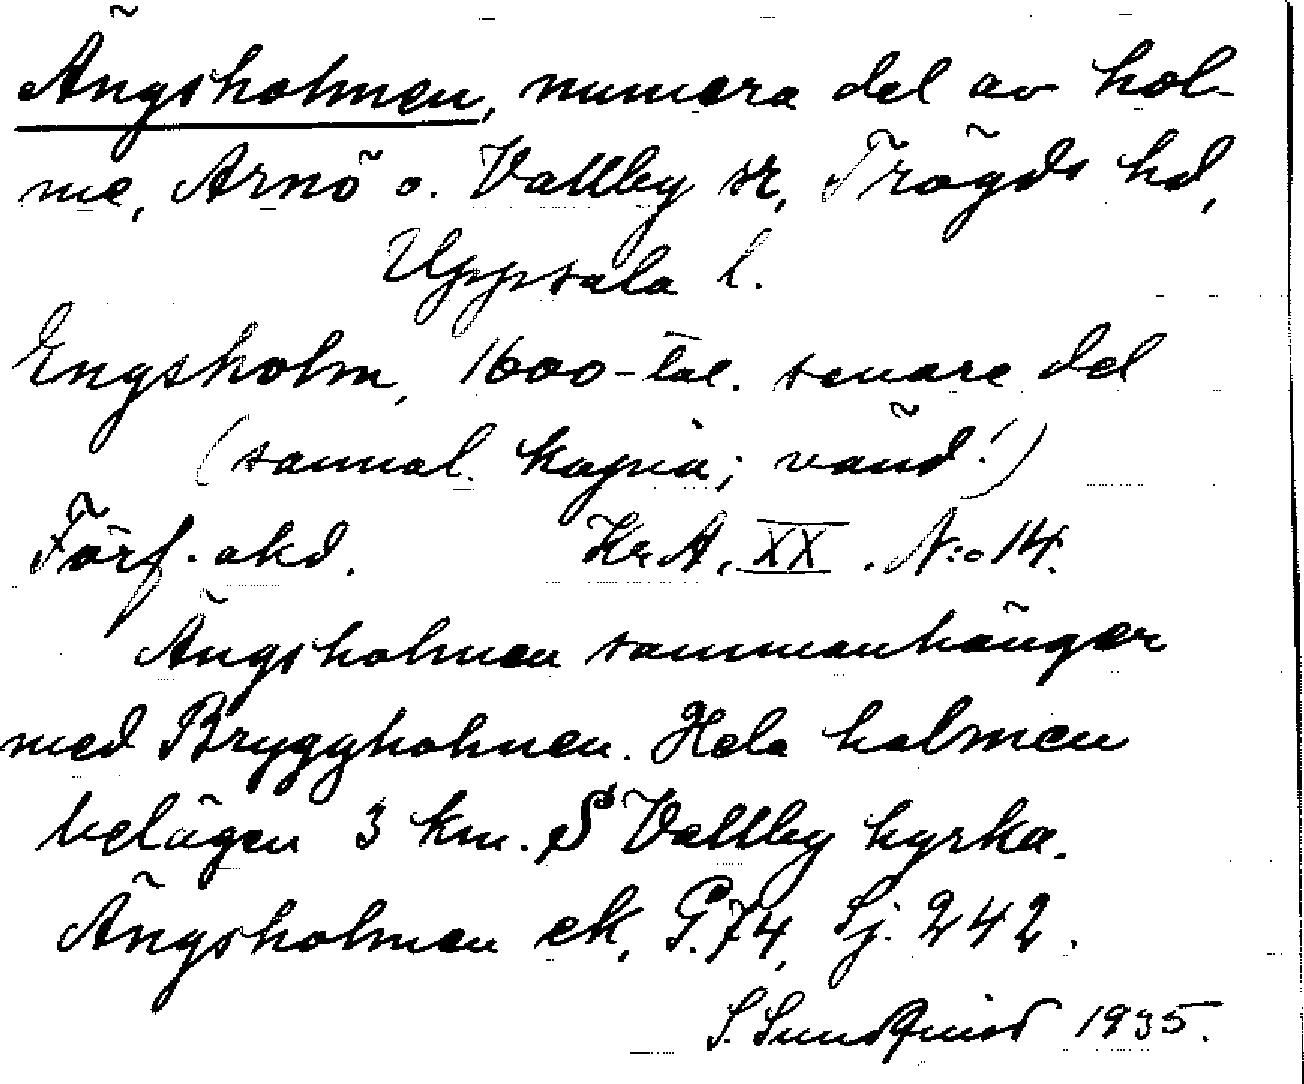 Ängsholmen, numera del av hol-
me, Arnö o. Vallby sr, Trögds hd,
Uppsala l.
Engsholm, 1600-tal. senare del
(sammal. kopia; vänd!)
Förf. okd. Kr.A. XX. N:o 14.
Ängsholmen sammanhänger
med Bryggholmen. Hela holmen
belägen 3 km. S Vallby kyrka.
Ängsholmen ek. G.74, Sj. 242.
S. Sundquist 1935.